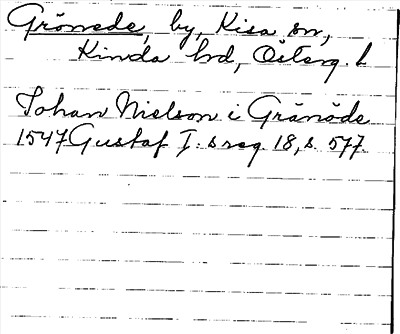 Grönede, by, Kisa sn,
Kinda hd, Österg. l
Johan Nielson i Grånöde
1547 Gustaf I:s reg. 18, s. 577.